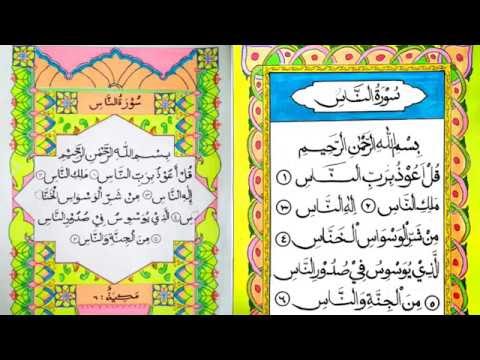 سُورَةُ النَّاسِ
بِسْمِ اللهِ الرَّحْمٰنِ الرَّحِيمِ
قُلْ أَعُوذُ بِرَبِّ النَّاسِ ١
مَلِكِ النَّاسِ ٢ إِلٰهِ النَّاسِ ٣
مِنْ شَرِّ الْوَسْوَاسِ الْخَنَّاسِ ٤
الَّذِي يُوَسْوِسُ فِي صُدُورِ النَّاسِ
٥ مِنَ الْجِنَّةِ وَالنَّاسِ ٦
سُورَةُ النَّاسِ
بِسْمِ اللهِ الرَّحْمٰنِ الرَّحِيمِ
قُلْ أَعُوذُ بِرَبِّ النَّاسِ ١ مَلِكِ النَّاسِ ٢
إِلٰهِ النَّاسِ ٣ مِنْ شَرِّ الْوَسْوَاسِ الْخَنَّا
سِ ٤ الَّذِي يُوَسْوِسُ فِي صُدُورِ النَّاسِ
٥ مِنَ الْجِنَّةِ وَالنَّاسِ ٦
مَكِّيَّةٌ : ٦